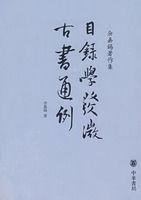 余嘉锡著作集
目録學發微
古書通例
余嘉锡 著
中華書局